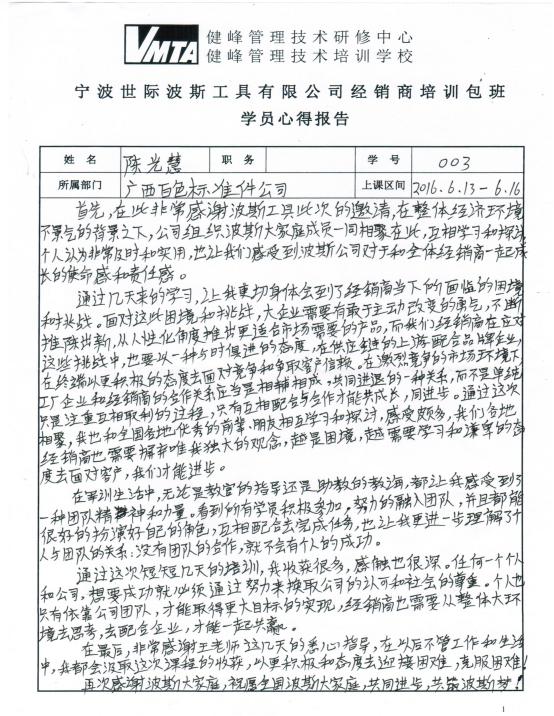 VMTA 健峰管理技术研修中心
健峰管理技术培训学校
宁波世际波斯工具有限公司经销商培训包班
学员心得报告
姓 名 陈光慧 职 务 学 号 003
所属部门 广西百色标准件公司 上课区间 2016.6.13-6.16
首先,在此非常感谢波斯工具此次的邀请,在整体经济环境
不景气的背景之下,公司组织波斯大家庭成员一同相聚在此,互相学习和探讨,
个人认为非常及时和实用,也让我们感受到波斯公司对于和全体经销商一起成
长的使命感和责任感。
通过几天来的学习,让我更切身体会到了经销商当下的面临的困境
和挑战。面对这些困境和挑战,大企业需要有敢于主动改变的勇气,不断
推陈出新,从人性化角度推出更适合市场需要的产品,而我们经销商在应对
这些挑战中,也要以一种与时俱进的态度,在供应链的上游配合品牌企业,
在终端以更积极的态度去面对竞争和争取客户信赖。在激烈竞争的市场环境下,
工厂企业和经销商的合作关系应当是相辅相成,共同进退的一种关系,而不是单纯
只是注重互相取利的过程,只有互相配合与合作才能共成长,同进步。通过这次
相聚,我也和全国各地优秀的前辈、朋友相互学习和探讨,感受颇多,我们各地
经销商也需要摒弃唯我独大的观念,越是困境,越需要学习和谦卑的态
度去面对客户,我们才能进步。
在军训生活中,无论是教官的指导还是助教的教诲,都让我感受到了
一种团队精神和力量。看到所有学员积极参加,努力的融入团队,并且都能
很好的扮演好自己的角色,互相配合去完成任务,也让我更进一步理解了个
人与团队的关系:没有团队的合作,就不会有个人的成功。
通过这次短短几天的培训,我收获很多,感触也很深。任何一个人
和公司,想要成功就必须通过努力来换取公司的认可和社会的尊重。个人也
只有依靠公司团队,才能取得更大目标的实现,经销商也需要从整体大环
境去思考,去配合企业,才能一起共赢。
在最后,非常感谢王老师这几天的悉心指导,在以后不管工作和生活
中,我都会汲取这次课程的收获,以更积极和态度去迎接困难,克服困难!
再次感谢波斯大家庭,祝愿全国波斯大家庭,共同进步,共筑波斯梦!
1